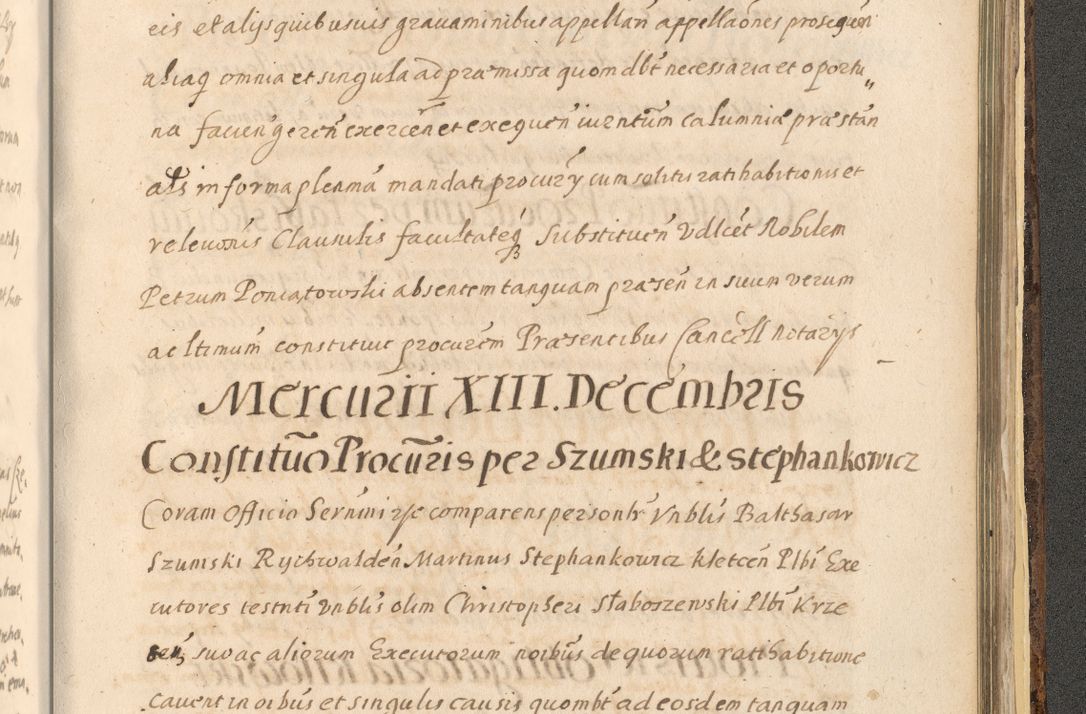 eis et alijs quibusuis grauaminibus appellan̄ appellaōnes proseqūen
aliaq omnia et singula ad præmissa quomdbt necessaria et oportu„
na facien gereñ exerceñ et exequeñ iurntūm calumniæ præstan
als in forma plenma mandati procurȳ cum solitis ratihabitionis et
releuonis Clausulis facultateq substitueñ vdlcet Nobilem
Petrum Poniatowski absentem tanquam præseñ in suum verum
ac ltimum constituit procurem Præsentibus Cancell notarys
Mercurii XIII. Decembris
Constitūo Procūris per Szumski & Stephankowicz
Coram Officio Sernmi &c comparens personlr Vnblis Balthasar
Szumski Rychwaldeñ Martinus Stephankowicz kletceñ Plbi Exe
cutores testnti Vnblis olim Christopheri Słaboszewski Plbi Krze
suo ac aliorum Executorum noibus de quorum ratihabitione
cauent in oibus et singulis causis quombt ad eosdem tanquam